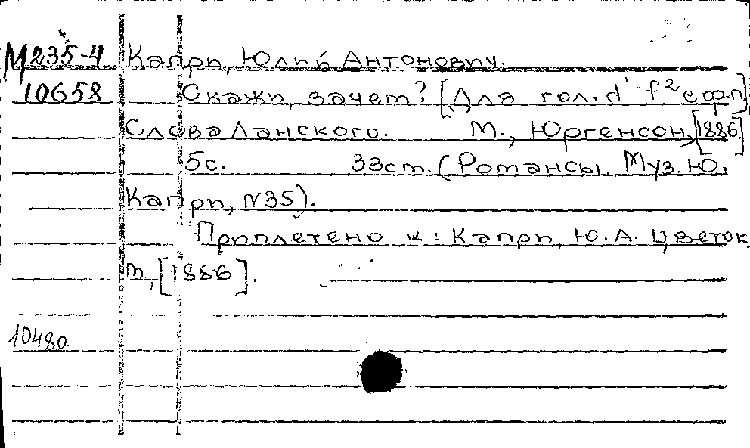 М235-4 Капри, Юлий Антонович.
10658 Скажи, зачем? [Для гол. d' f² с ф.п]
Слова Ланского. М., Юргенсон, [1886]
5с. 33ст. (Романсы. Муз. Ю.
Капри, N35).
Приплетено к: Капри, Ю.А. Цветок
М, [1886].
10480